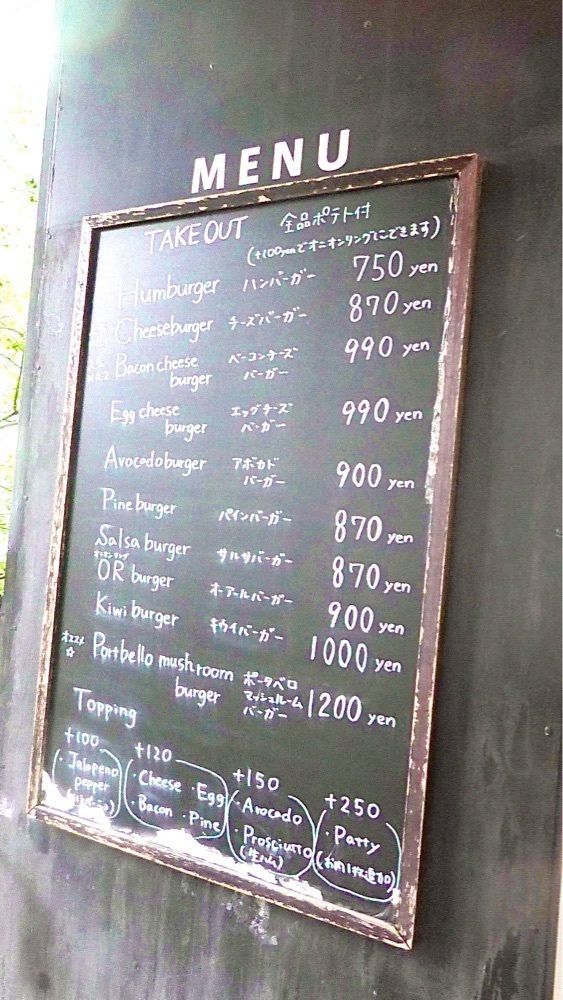 MENU
TAKEOUT 全品ポテト付
(+100yenでオニオンリングにできます)
Humburger ハンバーガー 750 yen
Cheeseburger チーズバーガー 870 yen
No.2 Bacon cheese burger ベーコンチーズバーガー 990 yen
Egg cheese burger エッグチーズバーガー 990 yen
Avocado burger アボカドバーガー 900 yen
Pine burger パインバーガー 870 yen
Salsa burger サルサバーガー 870 yen
オニオンリング
OR burger オーアールバーガー 900 yen
Kiwi burger キウイバーガー 1000 yen
オススメ☆ Portbello mushroom burger ポータベロマッシュルームバーガー 1200 yen
Topping
+100
・Jalapeno pepper
+120
・Cheese ・Egg
・Bacon ・Pine
+150
・Avocado
・Prosciutto
(生ハム)
+250
・Patty
(お肉1枚追加)